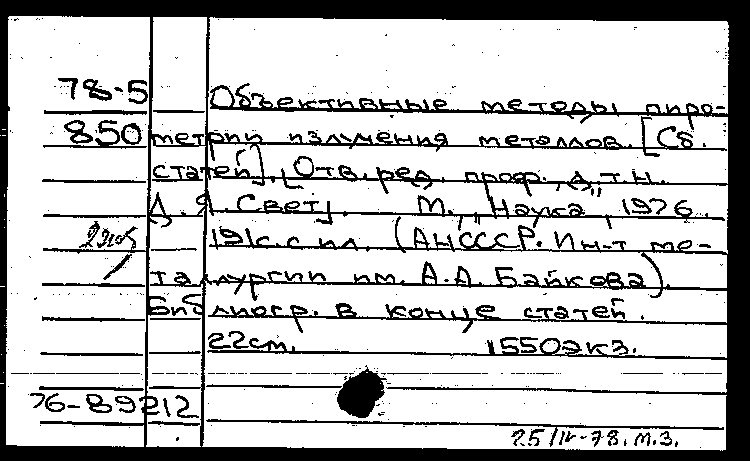 78-5 Объективные методы пиро-
850 метрии излучения металлов. [Сб.
статей]. [Отв. ред. проф., д.т.н.
Д. Я. Свет]. М., "Наука", 1976.
191с. с ил. (АН СССР. Ин-т ме-
таллургии им. А.А. Байкова).
Библиогр. в конце статей.
22cm. 1550экз.
76-89212
25/IV-78. м.з.